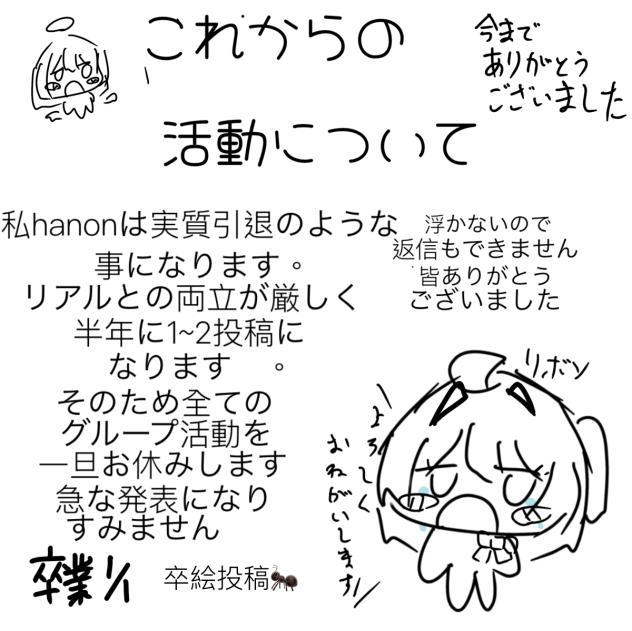 これからの
活動について
今まで
ありがとう
ございました
私hanonは実質引退のような
事になります。
リアルとの両立が厳しく
半年に1~2投稿に
なります 。
そのため全ての
グループ活動を
一旦お休みします
急な発表になり
すみません
浮かないので
返信もできません
皆ありがとう
ございました
リボン
よろしく
おねがいします//
卒業
卒絵投稿🐜